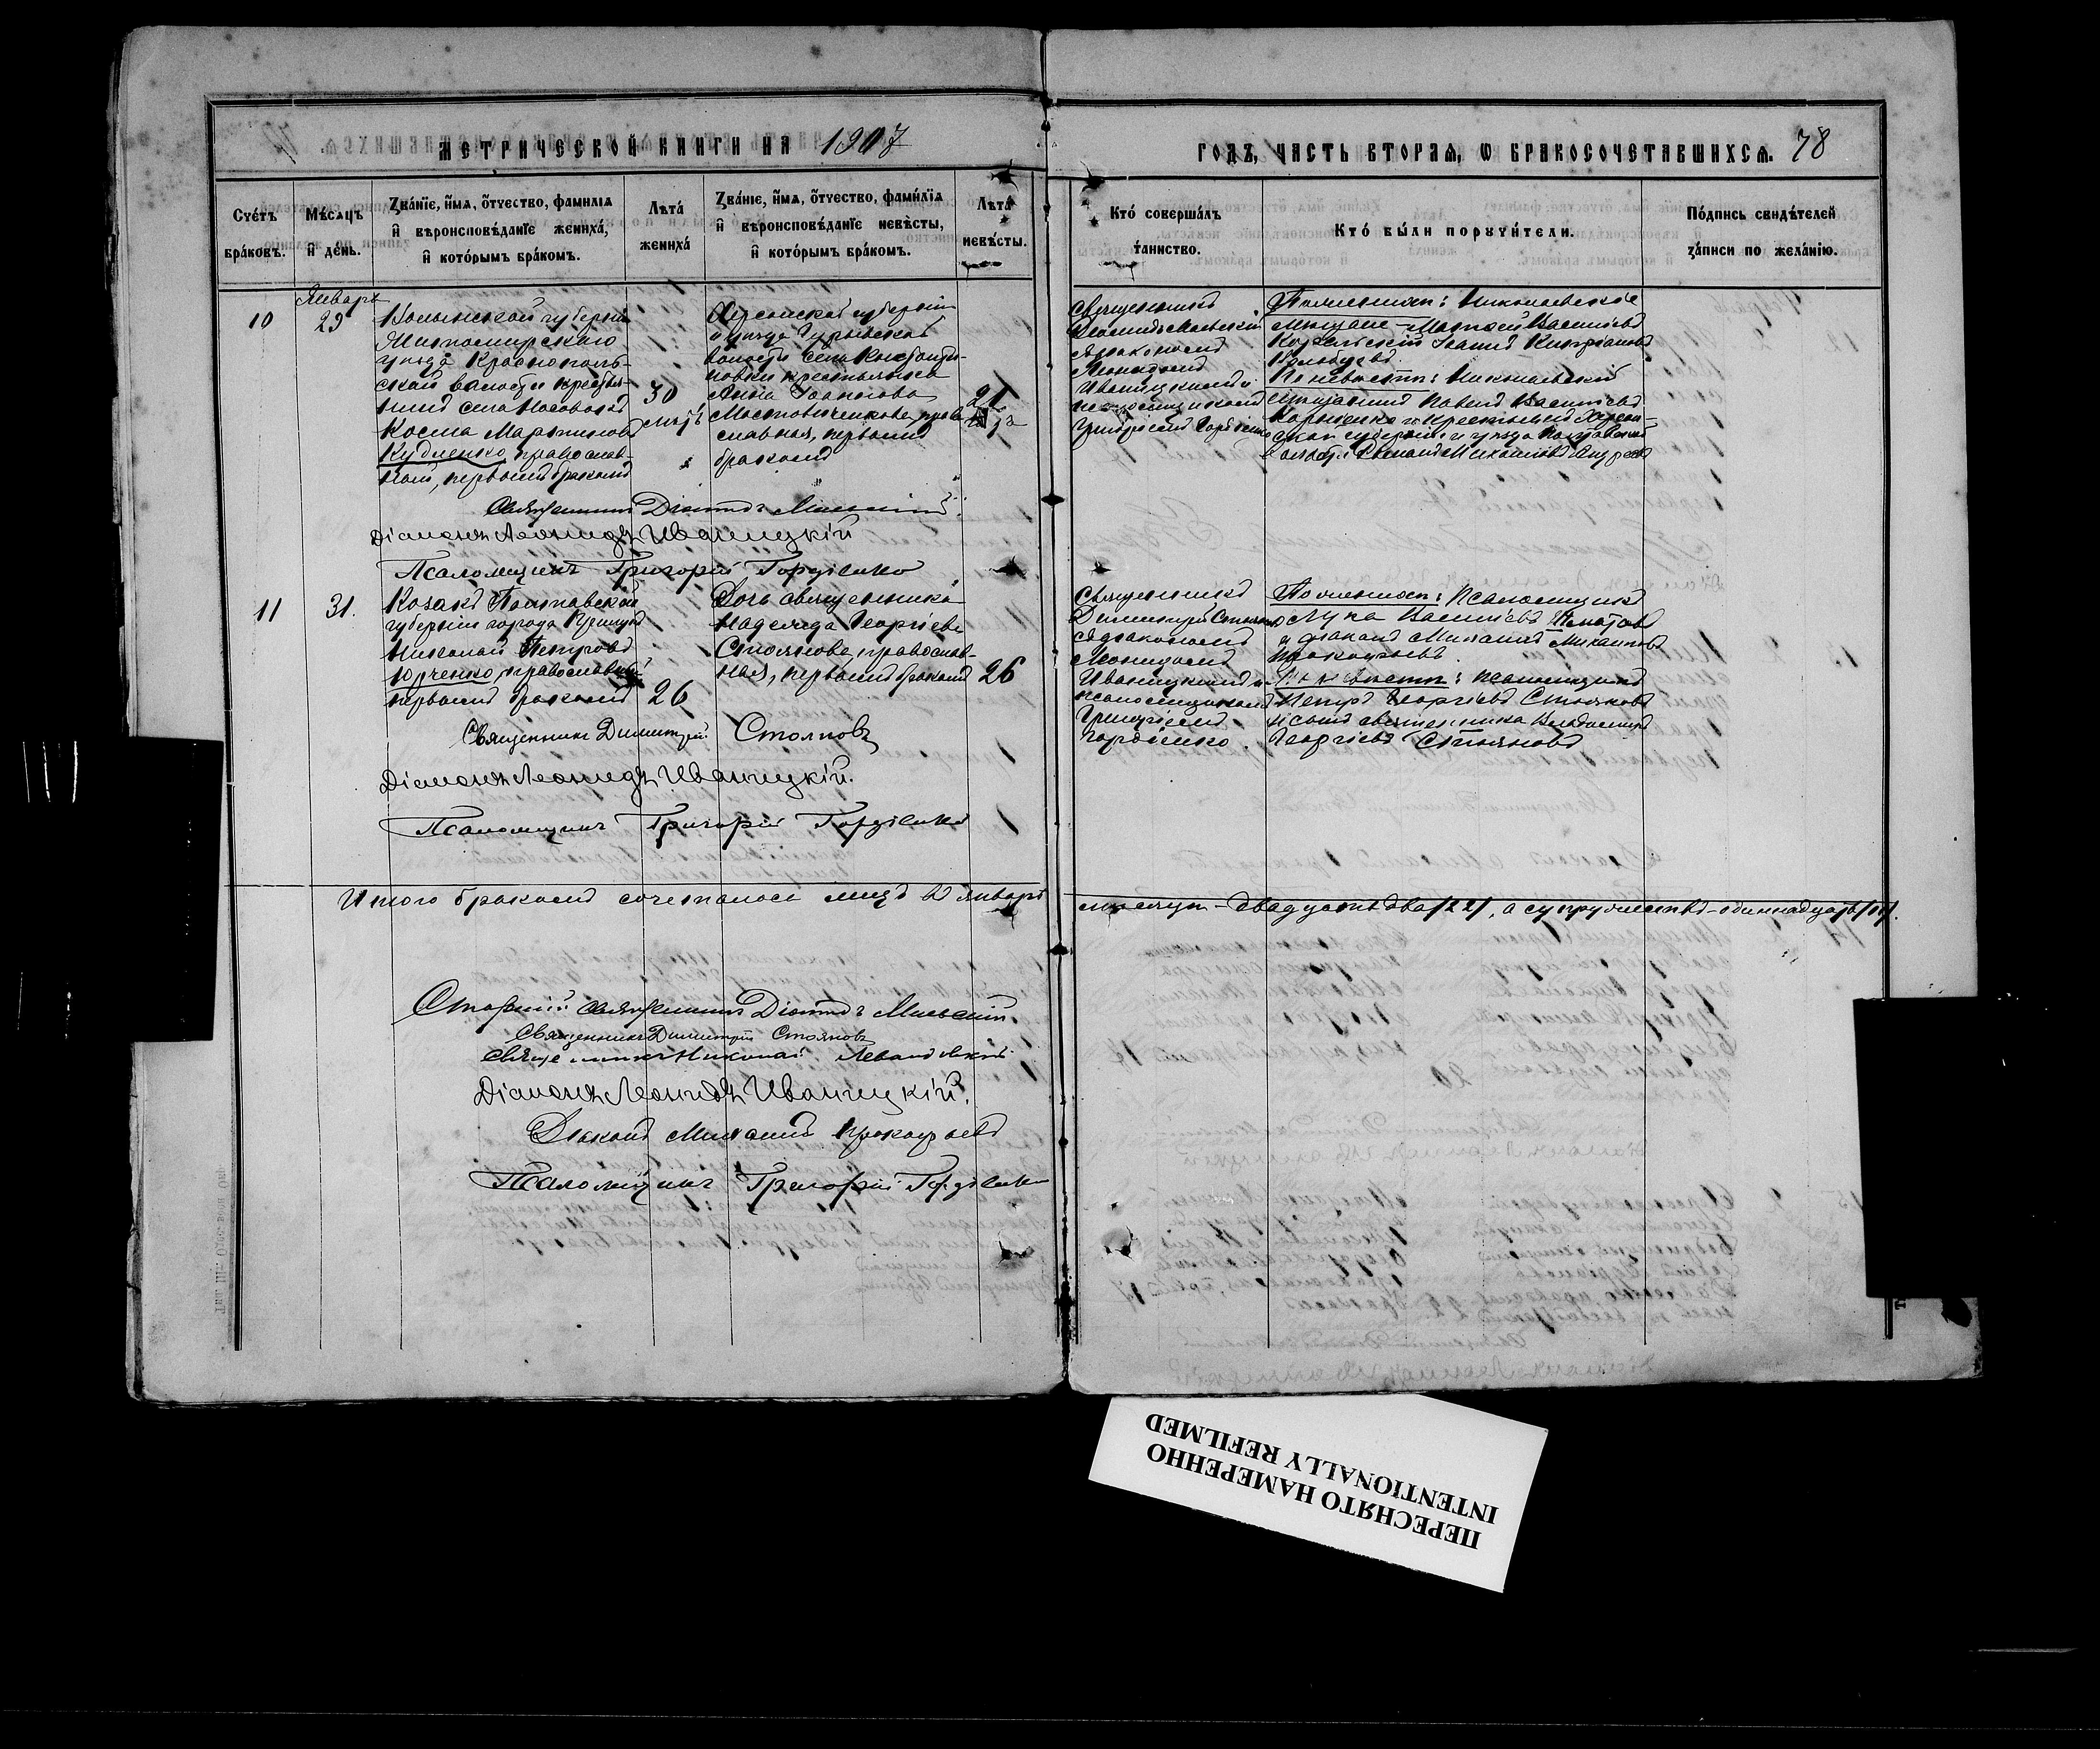 МЕТРИЧЕСКОЙ КНИГИ НА 1907
ГОДЪ, ЧАСТЬ ВТОРАЯ, Ѡ БРАКОСОЧЕТАВШИХСЯ. 78
Счетъ браковъ.
Мѣсяцъ и день.
Званіе, имя, отчество, фамилія и вѣроисповѣданіе жениха, и которымъ бракомъ.
Лѣта жениха
Званіе, имя, отчество, фамилія и вѣроисповѣданіе невѣсты, и которымъ бракомъ.
Лѣта невѣсты.
Кто совершалъ таинство.
Кто были поручители.
Подпись свидѣтелей записи по желанію.
10
Января
29
Волынской губерніи
Житомирскаго
уѣзда Краснополь-
ской волости крестья-
нинъ села
Косма Мартиновъ
Кудленко, православ-
ный, первымъ бракомъ
30
лѣтъ
Херсонской губерніи
и уѣзда
волости села Константи-
новки крестьянка
Анна
православная, первымъ
бракомъ
21
Священникъ
Діаконом
Леонидомъ
Иваницкимъ и
псаломщикомъ
Григоріемъ Гордіенко
По женихѣ: Николаевскіе
мѣщане Матвей Васильевъ
Іоаннъ Кипріановъ
По невѣстѣ: Николаевскій
мѣщанинъ Павелъ Васильевъ
и крестьянинъ Херсон-
ской губерніи и уѣзда
волости Михаиловъ
Священникъ
Діаконъ Леонидъ Иваницкій
Псаломщикъ Григорій Гордіенко
11
31.
Козакъ Полтавской
губерніи города
Николай Петровъ
Юрченко, православный,
первымъ бракомъ
26
Дочь священника
Надежда Георгіева
Стоянова, православ-
ная, первымъ бракомъ
26
Священникъ
Димитрій Стояновъ
съ діакономъ
Леонидомъ
Иваницкимъ и
псаломщикомъ
Григоріемъ
Гордіенко.
По женихѣ: псаломщикъ
Лука Васильевъ
и діаконъ Михаилъ Михаиловъ
Прокофьевъ.
По невѣстѣ: псаломщикъ
Петръ Георгіевъ Стояновъ
и сынъ священника Владимиръ
Георгіевъ Стояновъ
Священникъ Димитрій Стояновъ
Діаконъ Леонидъ Иваницкій.
Псаломщикъ Григорій Гордіенко
Итого бракомъ сочеталось лицъ въ январѣ мѣсяцѣ - двадцать два /22/, а супружествъ - одиннадцать /11/.
Старшій священникъ
Священникъ Димитрій Стояновъ
Священникъ Николай
Діаконъ Леонидъ Иваницкій.
Діаконъ Михаилъ Прокофьевъ
Псаломщикъ Григорій Гордіенко
ПЕРЕСНЯТО НАМЕРЕННО
INTENTIONALLY REFILMED